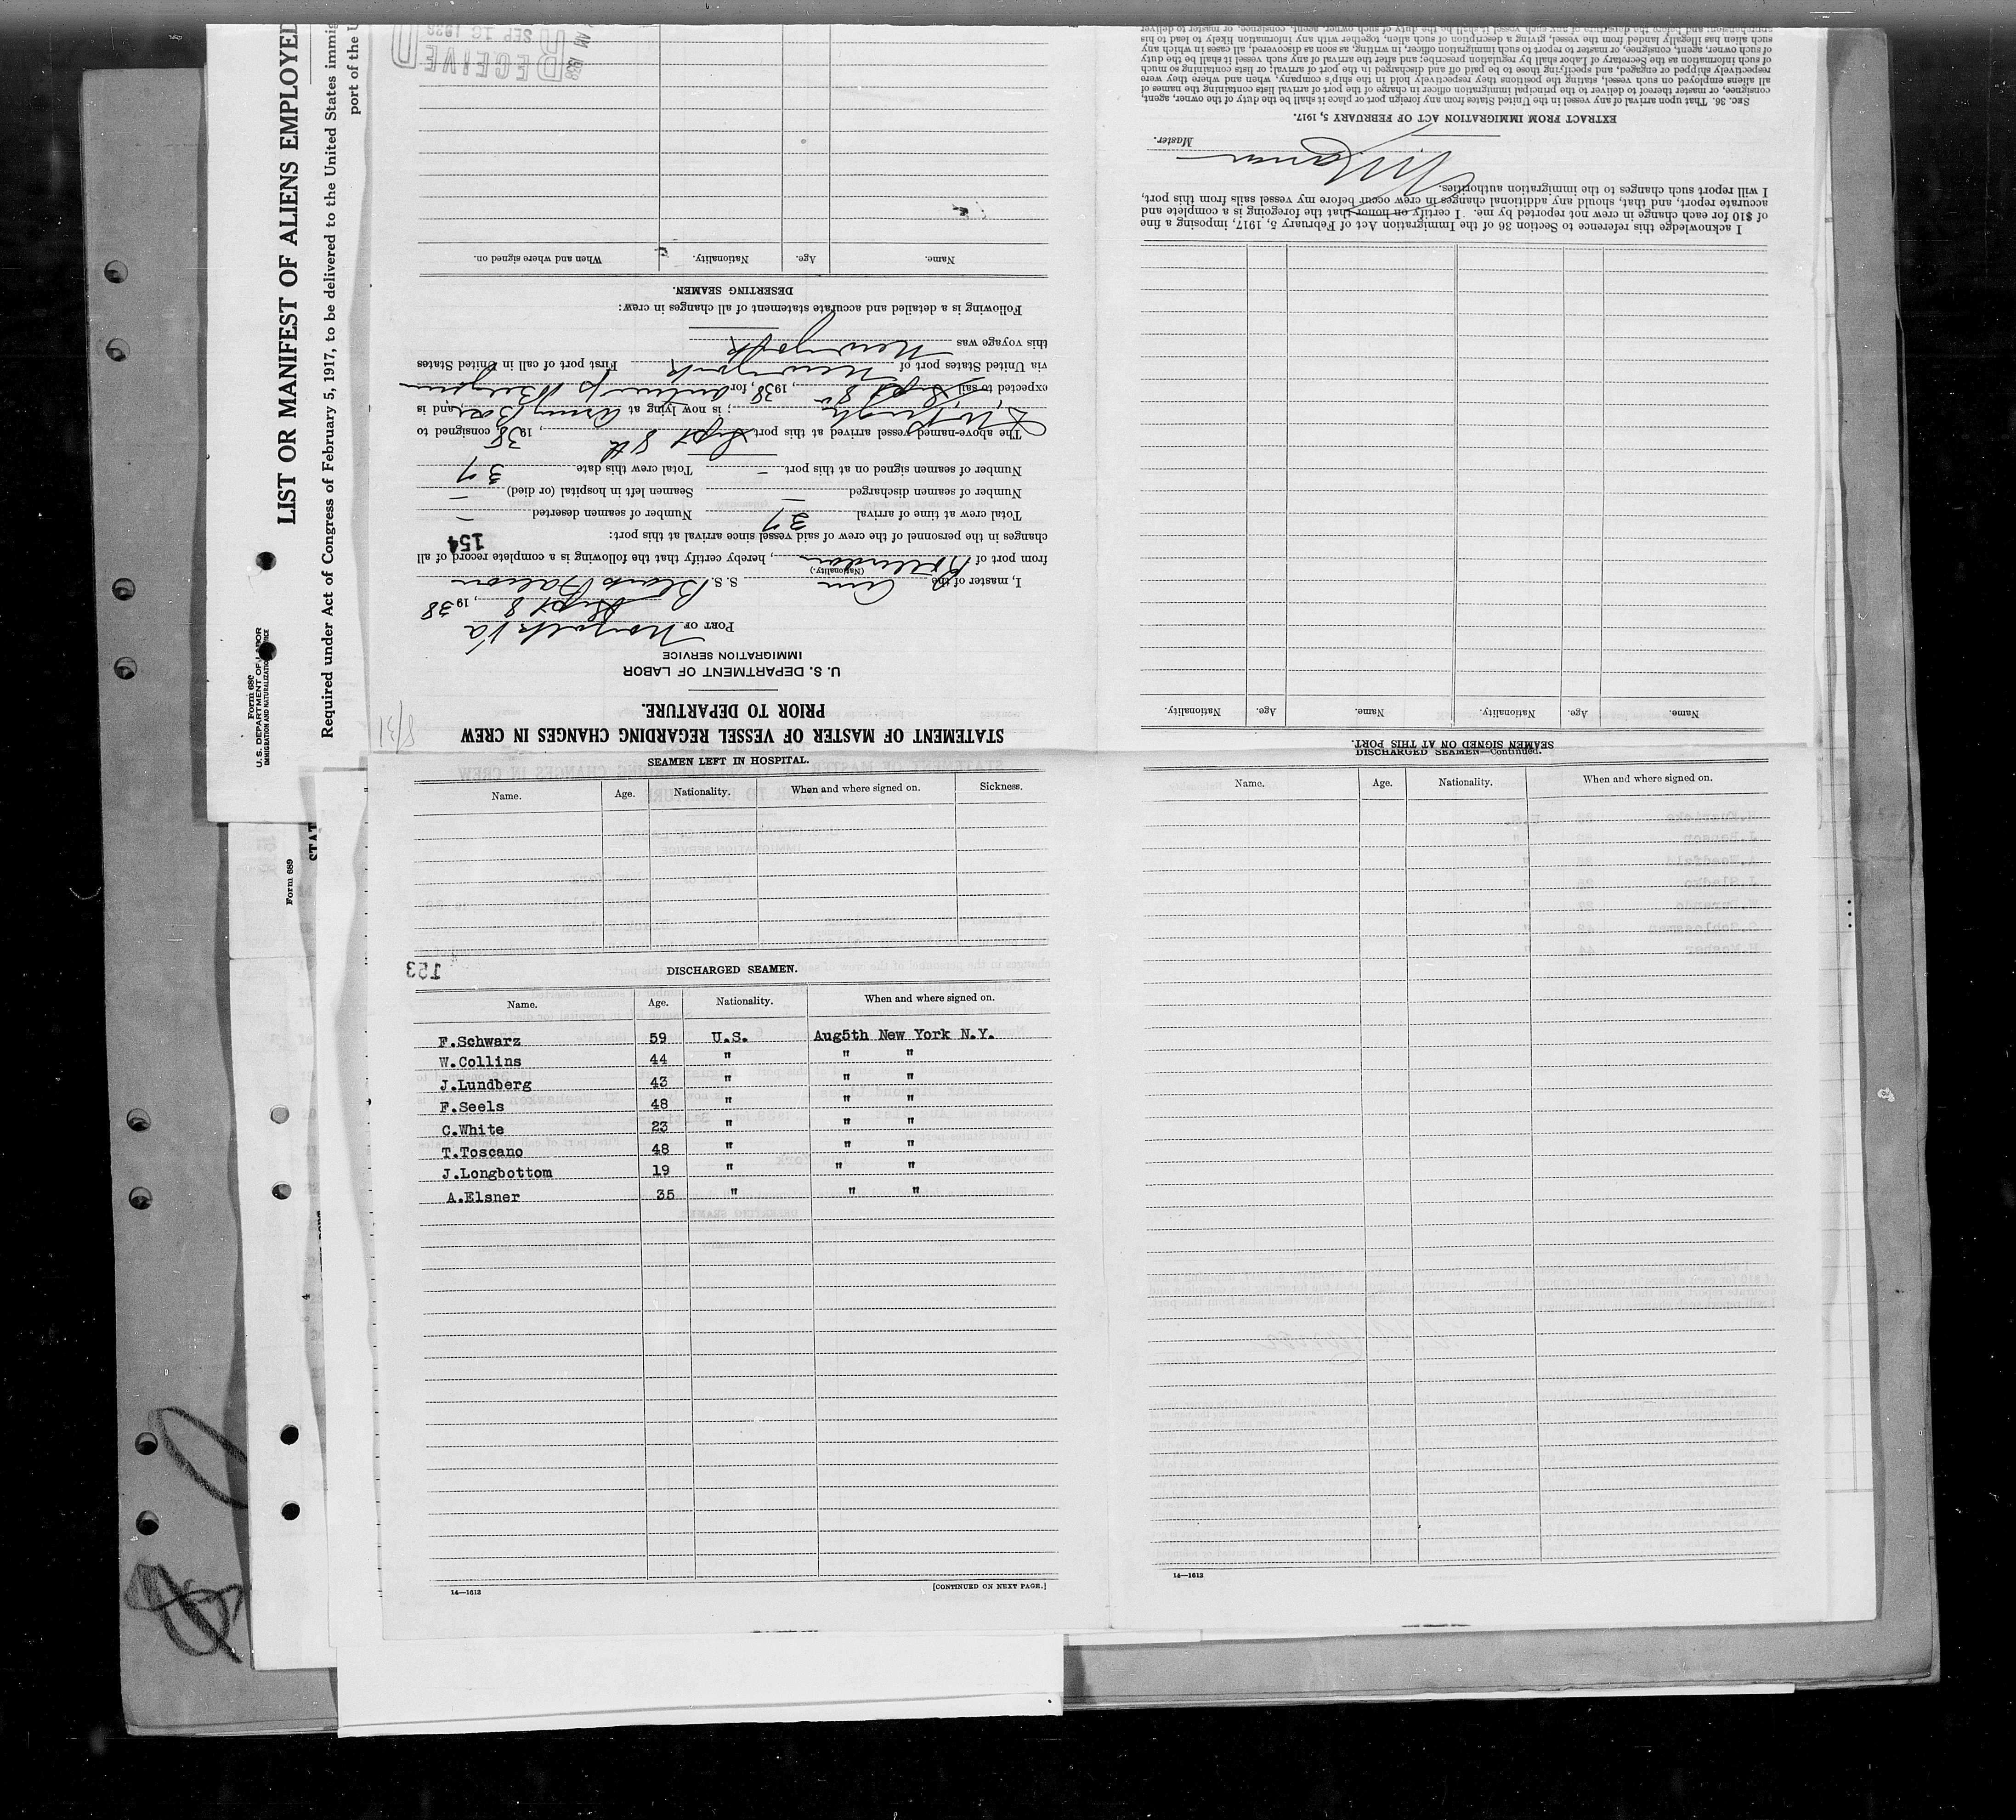 LIST OR MANIFEST OF ALIENS EMPLOYED
Required under Act of Congress of February 5, 1917, to be delivered to the United States immig
port of the U
Form 689
U. S. DEPARTMENT OF LABOR
IMMIGRATION AND NATURALIZATION SERVICE
Form 689
STAT
STATEMENT OF MASTER OF VESSEL REGARDING CHANGES IN CREW
PRIOR TO DEPARTURE.
U. S. DEPARTMENT OF LABOR
IMMIGRATION SERVICE
PORT OF Norfolk Va
Sept 8, 1938
I, master of the Am S. S. Black Falcon
(Nationality.)
from port of , hereby certify that the following is a complete record of all
changes in the personnel of the crew of said vessel since arrival at this port:
154
Total crew at time of arrival 37 Number of seamen deserted —
Number of seamen discharged — Seamen left in hospital (or died) —
Number of seamen signed on at this port — Total crew this date 37
The above-named vessel arrived at this port Sept 8th, 1938 consigned to
; is now lying at Army Base, and is
expected to sail Sept 8, 1938, for Antwerp Belgium
via United States port of New York First port of call in United States
this voyage was New York
Following is a detailed and accurate statement of all changes in crew:
DESERTING SEAMEN.
Name. Age. Nationality. When and where signed on.
RECEIVED
SEP 10 1938
SEAMEN SIGNED ON AT THIS PORT.
Name. Age. Nationality. Name. Age. Nationality.
I acknowledge this reference to Section 36 of the Immigration Act of February 5, 1917, imposing a fine
of $10 for each change in crew not reported by me. I certify on honor that the foregoing is a complete and
accurate report, and that, should any additional changes in crew occur before my vessel sails from this port,
I will report such changes to the immigration authorities.
Master.
EXTRACT FROM IMMIGRATION ACT OF FEBRUARY 5, 1917.
Sec. 36. That upon arrival of any vessel in the United States from any foreign port or place it shall be the duty of the owner, agent,
consignee, or master thereof to deliver to the principal immigration officer in charge of the port of arrival lists containing the names of
all aliens employed on such vessel, stating the positions they respectively hold in the ship's company, when and where they were
respectively shipped or engaged, and specifying those to be paid off and discharged in the port of arrival; or lists containing so much
of such information as the Secretary of Labor shall by regulation prescribe; and after the arrival of any such vessel it shall be the duty
of such owner, agent, consignee, or master to report to such immigration officer, in writing, as soon as discovered, all cases in which any
such alien has illegally landed from the vessel, giving a description of such alien, together with any information likely to lead to his
SEAMEN LEFT IN HOSPITAL.
Name. Age. Nationality. When and where signed on. Sickness.
153
DISCHARGED SEAMEN.
Name. Age. Nationality. When and where signed on.
F.Schwarz 59 U.S. Aug5th New York N.Y.
W.Collins 44 " " "
J.Lundberg 43 " " "
F.Seels 48 " " "
C.White 23 " " "
T.Toscano 48 " " "
J.Longbottom 19 " " "
A.Elsner 35 " " "
14—1613 [CONTINUED ON NEXT PAGE.]
DISCHARGED SEAMEN—Continued.
Name. Age. Nationality. When and where signed on.
14—1613